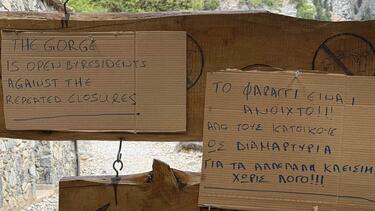 THE GORGE
IS OPEN BY RESIDENTS
AGAINST THE
REPEATED CLOSURES
ΤΟ ΦΑΡΑΓΓΙ ΕΙΝΑΙ
ΑΝΟΙΧΤΟ!!!
ΑΠΟ ΤΟΥΣ ΚΑΤΟΙΚΟΥΣ
ΟΣ ΔΙΑΜΑΡΤΥΡΙΑ
ΓΙΑ ΤΑ ΑΠΕΠΑΛΛΑ ΚΛΕΙΣΙΜ
ΧΩΡΙΣ ΛΟΓΟ!!!